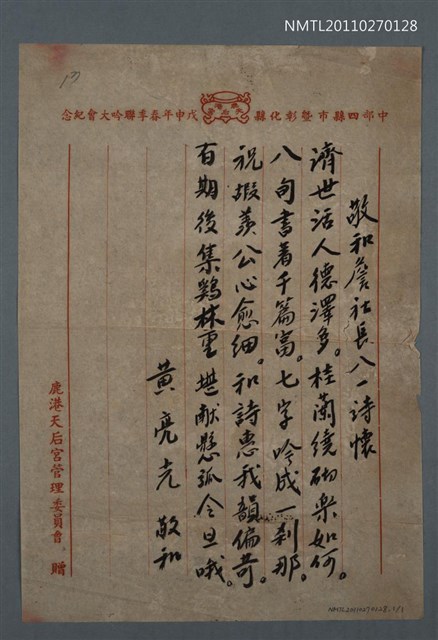 NMTL20110270128
中部四縣市暨彰化縣戊申年春季聯吟大會紀念
敬和詹社長八一詩懷
濟世活人德澤多。桂蘭繞砌樂如何。
八旬書著千篇富。七字吟成一刹那。
祝嘏羨公心愈細。和詩惠我韻偏苛。
百期後集鷄林重 堪献懸弧令旦哦。
黃亮光 敬和
鹿港天后宮管理委員會 贈
NMTL20110270128